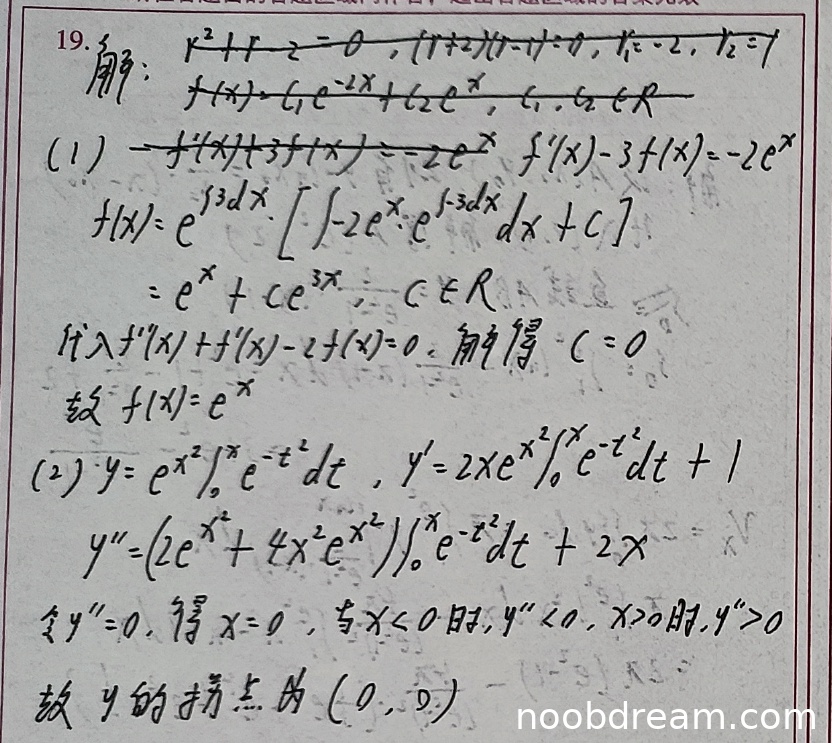 19.
解: r²+r-2=0, (r+2)(r-1)=0, r₁=-2, r₂=1
f(x)=C₁e^{-2x}+C₂e^x, C₁, C₂∈R
(1) -f'(x)+3f(x)=-2e^x f'(x)-3f(x)=-2e^x
f(x)=e^{∫3dx}·[∫-2e^x·e^{∫-3dx}dx+C]
=e^x+Ce^{3x}, C∈R
代入f''(x)+f'(x)-2f(x)=0, 解得 C=0
故 f(x)=e^x
(2) y=e^{x²}∫₀^x e^{-t²}dt, y'=2xe^{x²}∫₀^x e^{-t²}dt+1
y''=(2e^{x²}+4x²e^{x²})∫₀^x e^{-t²}dt+2x
令y''=0, 得x=0, 当x<0时, y''<0, x>0时, y''>0
故 y的拐点为(0, 0)
noobdream.com